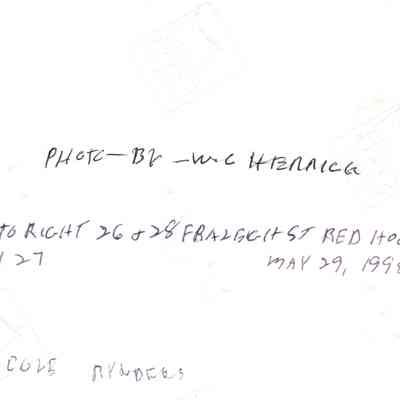 PHOTO-BY -W.C HERRICK
TO RIGHT 26 & 28 FRALEIGH ST RED HOO
27 MAY 29, 199
COLE RYNDERS